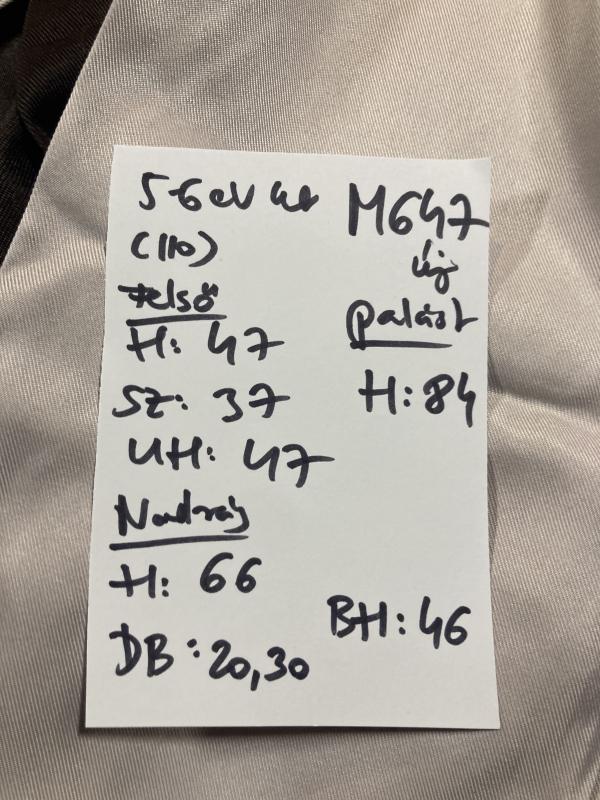 5-6 év
(110)
Felső
H: 47
SZ: 37
UH: 47
Nadrág
H: 66
DB: 20,30
M647
új
palást
H: 84
BH: 46